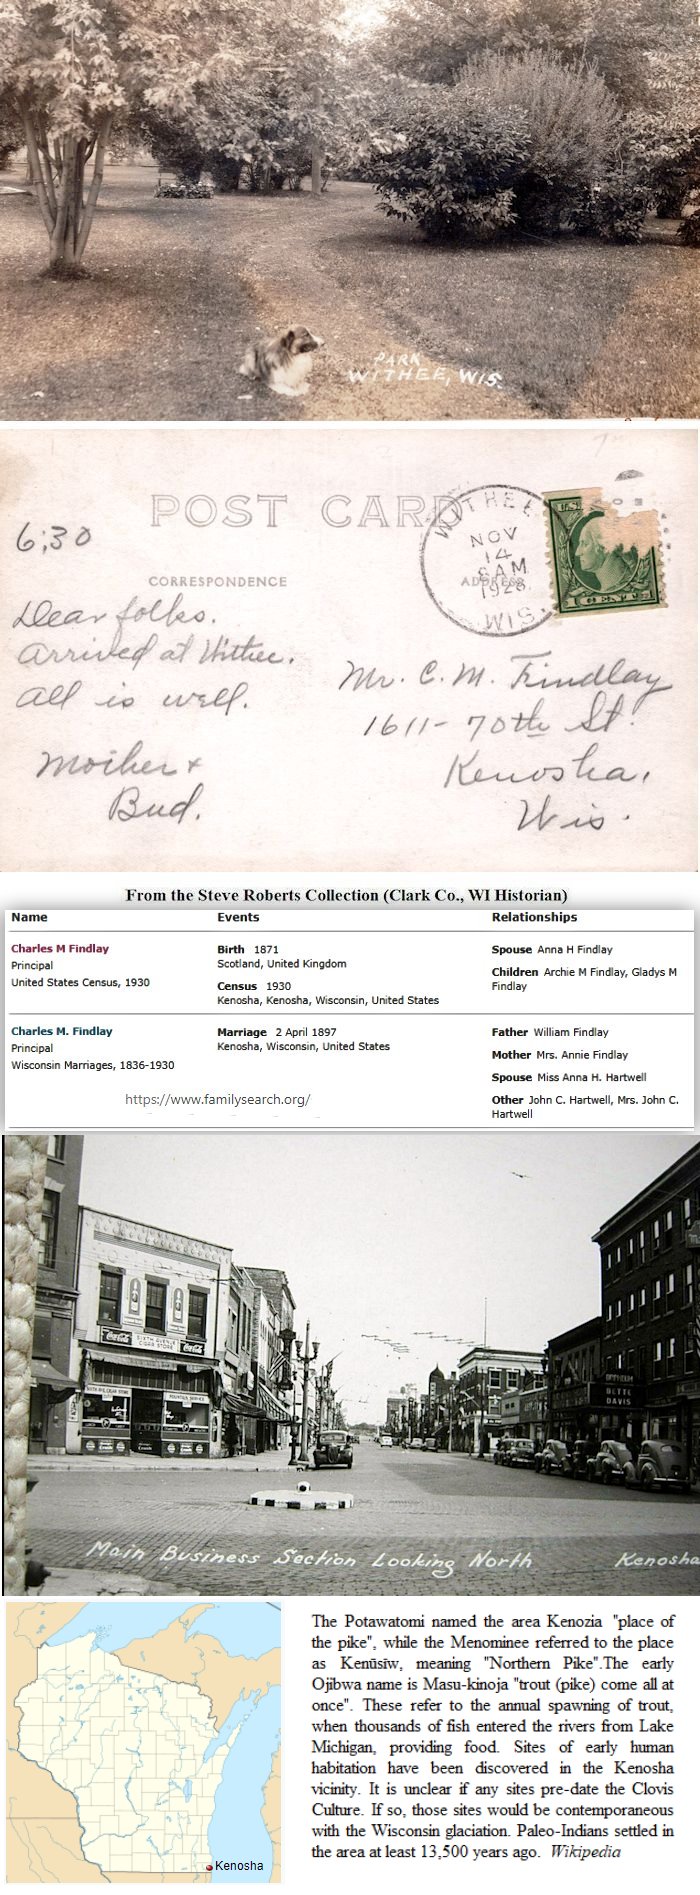 PARK
WITHEE, WIS.
POST CARD
6:30
CORRESPONDENCE
ADDRESS
WITHEE
NOV
14
8AM
1928
WIS.
U.S.
1 CENT 1
Dear folks.
Arrived at Withee.
All is well.
Mother +
Bud.
Mr. C. M. Findlay
1611- 70th St.
Kenosha,
Wis.
From the Steve Roberts Collection (Clark Co., WI Historian)
Name Events Relationships
Charles M Findlay
Principal
United States Census, 1930
Birth 1871
Scotland, United Kingdom
Census 1930
Kenosha, Kenosha, Wisconsin, United States
Spouse Anna H Findlay
Children Archie M Findlay, Gladys M
Findlay
Charles M. Findlay
Principal
Wisconsin Marriages, 1836-1930
Marriage 2 April 1897
Kenosha, Wisconsin, United States
Father William Findlay
Mother Mrs. Annie Findlay
Spouse Miss Anna H. Hartwell
Other John C. Hartwell, Mrs. John C.
Hartwell
https://www.familysearch.org/
Coca-Cola
SIXTH AVENUE
CIGAR STORE
Coca-Cola
SIXTH AVE. CIGAR STORE
FOUNTAIN SERVICE
ORPHEUM
BETTE
DAVIS
Main Business Section Looking North
Kenosha
Kenosha
The Potawatomi named the area Kenozia "place of
the pike", while the Menominee referred to the place
as Kenūsīw, meaning "Northern Pike".The early
Ojibwa name is Masu-kinoja "trout (pike) come all at
once". These refer to the annual spawning of trout,
when thousands of fish entered the rivers from Lake
Michigan, providing food. Sites of early human
habitation have been discovered in the Kenosha
vicinity. It is unclear if any sites pre-date the Clovis
Culture. If so, those sites would be contemporaneous
with the Wisconsin glaciation. Paleo-Indians settled in
the area at least 13,500 years ago. Wikipedia